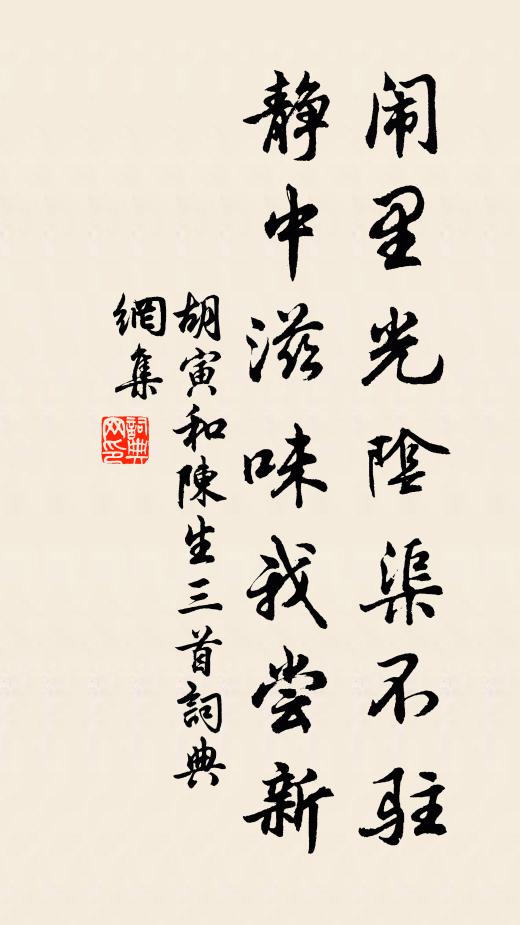 闹里光陰渠不駐
静中滋味我尝新
胡寅和陳生三首詞典
網集
詞典网印